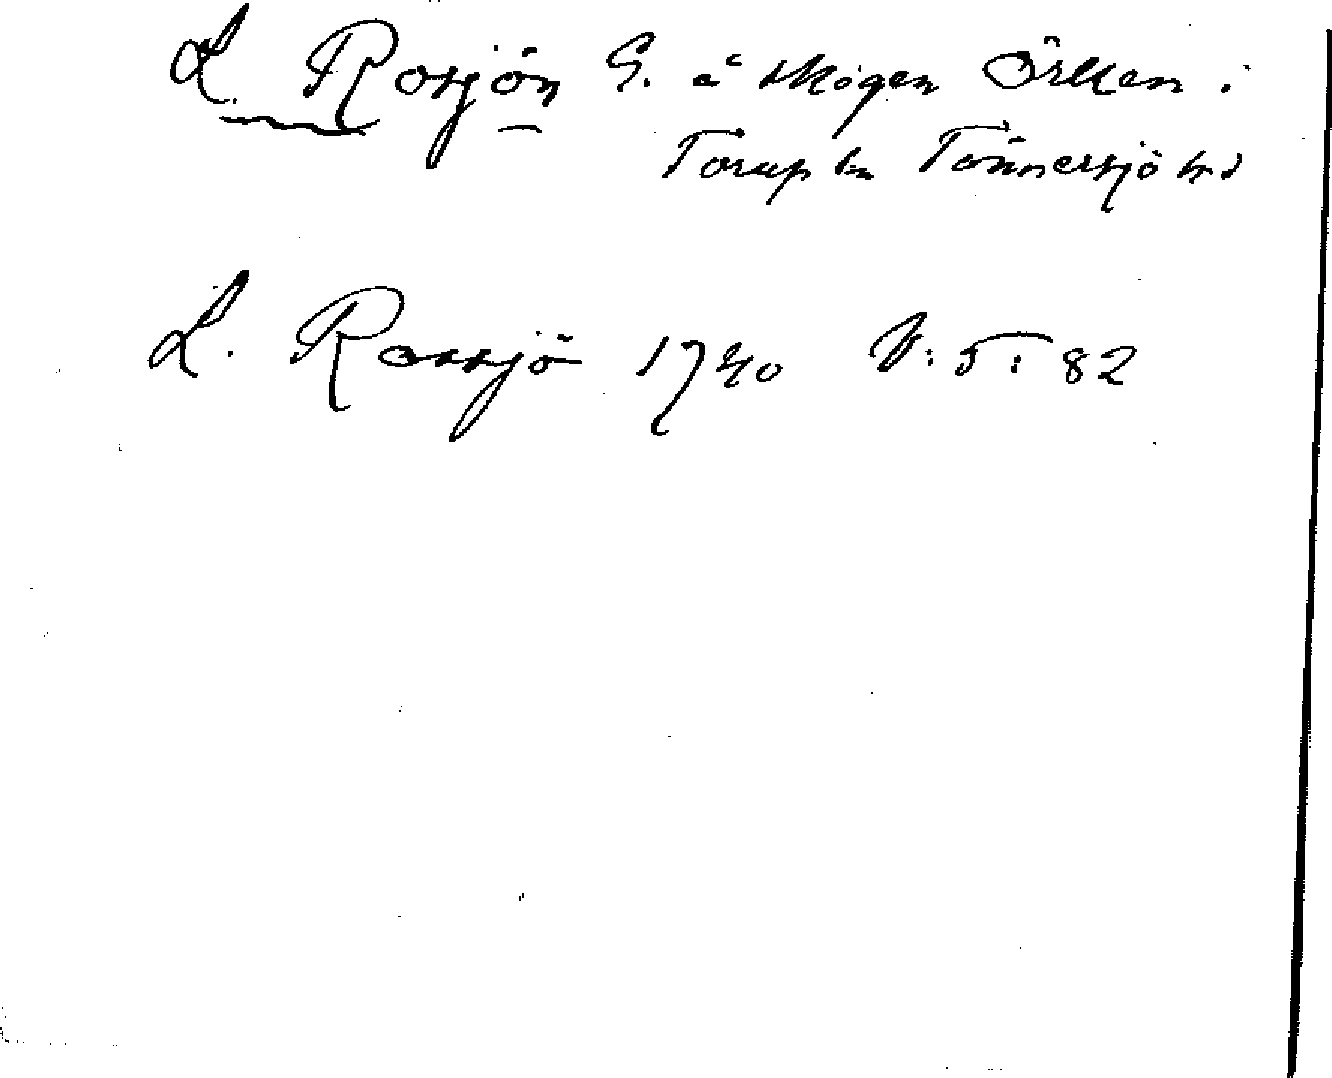 L. Rosjön S. å skogen Örken i
Torup sn Tönnersjö hd
L. Rossjö 1740 V: 5: 82